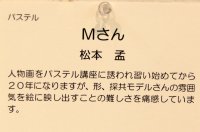 パステル
Mさん
松本 孟
人物画をパステル講座に誘われ習い始めてから
20年になりますが、形、採共モデルさんの雰囲気
を絵に映し出すことの難しさを痛感していま
す。